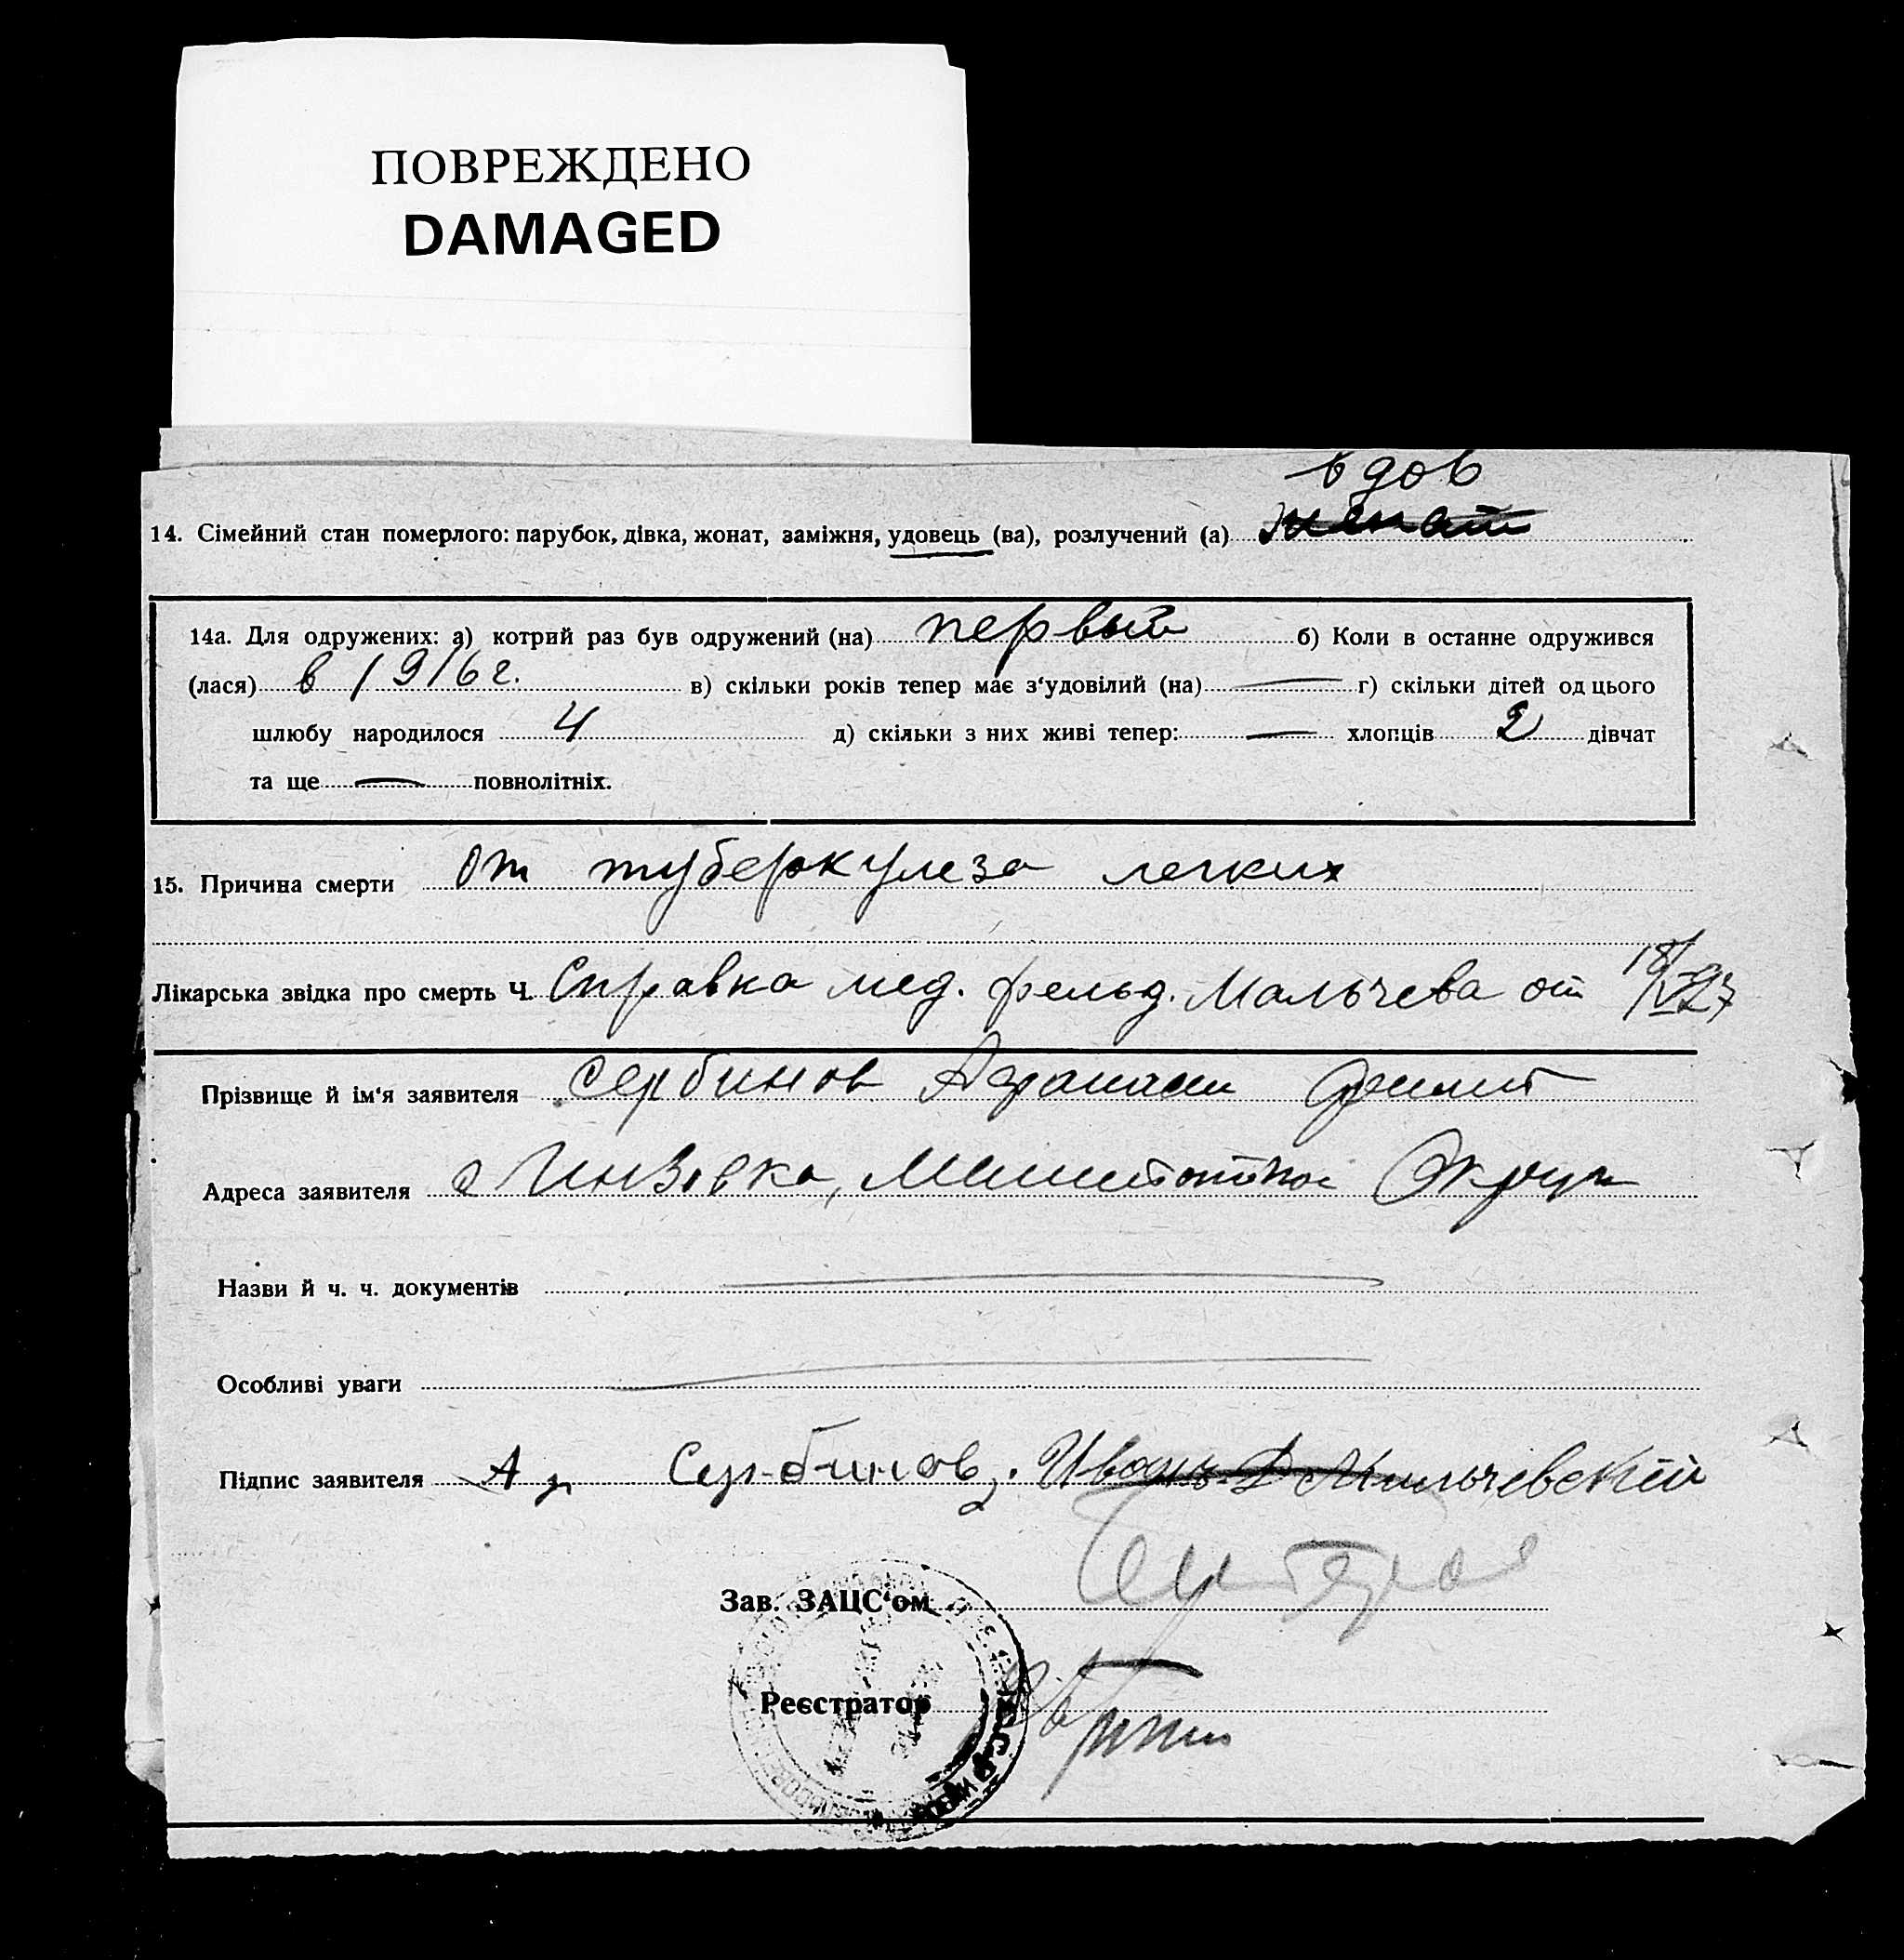 ПОВРЕЖДЕНО
DAMAGED
вдов
14. Сімейний стан померлого: парубок, дівка, жонат, заміжня, удовець (ва), розлучений (а) женат
14а. Для одружених: а) котрий раз був одружений (на) первый б) Коли в останне одружився
(лася) в 1916 г. в) скільки років тепер має з'удовілий (на) — г) скільки дітей од цього
шлюбу народилося 4 д) скільки з них живі тепер: — хлопців 2 дівчат
та ще — повнолітніх.
15. Причина смерти от туберкулеза легких
Лікарська звідка про смерть Ч. Справка мед. фельд. Мальчева от 18/IV-27
Прізвище й ім'я заявителя Сербинов
Адреса заявителя Округ
Назви й ч. ч. документів
Особливі уваги
Підпис заявителя Сербинов. Иван Д Мильчевскій
Зав. ЗАЦС'ом
Реєстратор